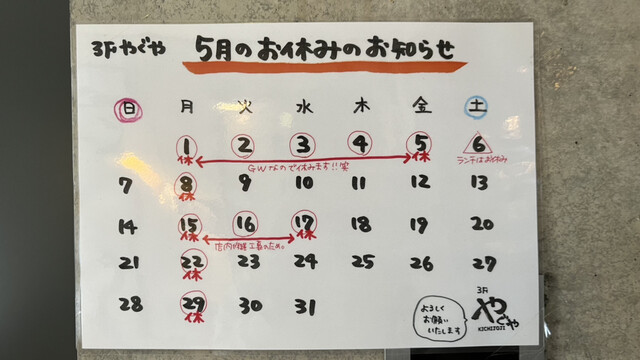 3F やぐや 5月のお休みのお知らせ
日 月 火 水 木 金 土
1 2 3 4 5 6
休 休
GWなので休みます!!笑 ランチはお休み
7 8 9 10 11 12 13
休
14 15 16 17 18 19 20
休 休
店内改装工事のため。
21 22 23 24 25 26 27
休
28 29 30 31
休
よろしく
お願い
いたします
3F
やぐや
KICHIJOJI